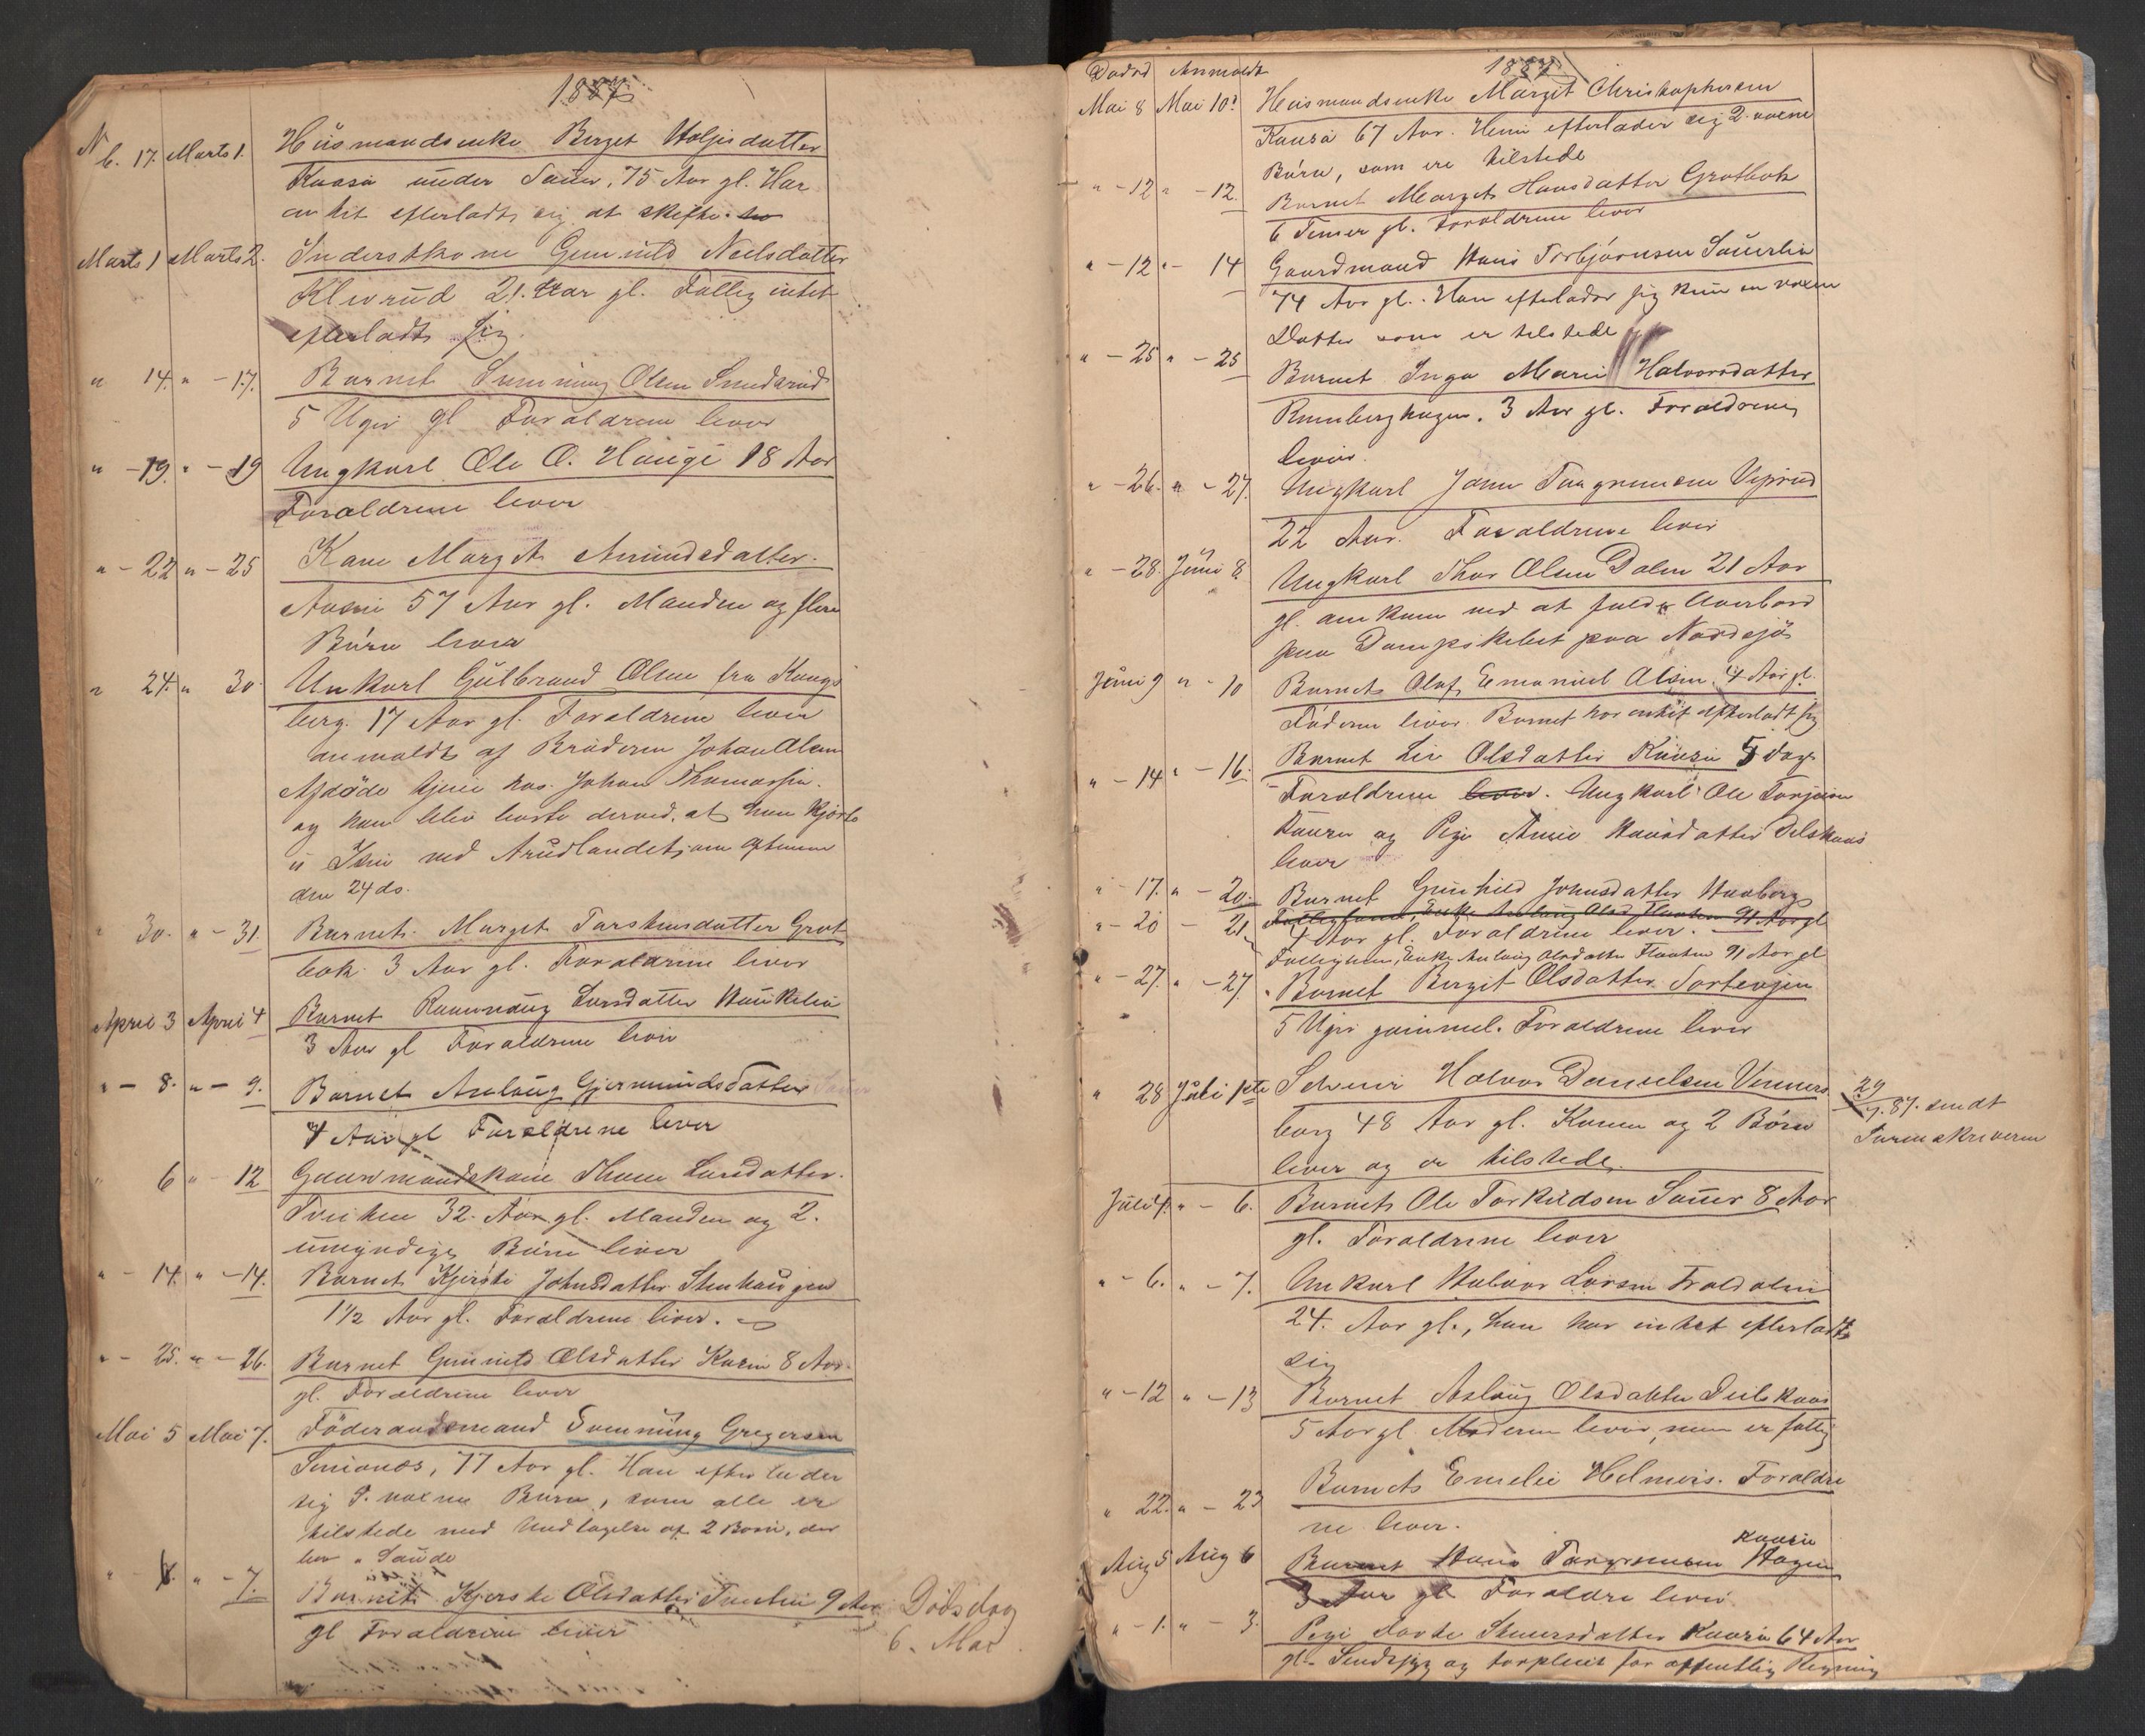 1887
N
6. 17. Marts 1. Huusmandsenke Berget Holjesdatter
Kaasa under Sauer, 75 Aar gl. Har
intet efterladt sig at skifte.
Marts 1 Marts 2. Inderstkone Gunnild Neelsdatter
Kleivrud 21. Aar gl. Fattig intet
efterladt sig.
" 14. " - 17. Barnet Svenning Olsen Smedsrud
5 Uger gl Forældrene lever
" - 19. " - 19 Ungkarl Ole O. Hauge 18 Aar
Forældrene lever
" - 22 " - 25 Kone Margit Amundsdatter.
57 Aar gl. Manden og flere
Børn lever
" 24. " 30. Unkarl Gulbrand Olsen fra Kongs
berg. 17 Aar gl. Forældrene lever
anmeldt af Broderen Johan Olsen
Afdøde tjente hos Johan Thomassen.
og han blev borte derved, at han kjørte
i Isen ved Arudlandet, om Aftenen
den 24 ds.
" 30. " - 31. Barnet Margit Torstensdatter Grot
bæk. 3 Aar gl. Forældrene lever
April 3 April 4 Barnet Rannaug Larsdatter Haukelia
3 Aar gl Forældrene lever
" - 8. " - 9. Barnet Aslaug Gjermundsdatter Sauer
4 Aar gl Forældrene lever
" 6 " - 12 Gaardmandskone Thone Larsdatter.
32. Aar gl. Manden og 2.
umyndige Børn lever
" - 14. " - 14. Barnet Kjersti Johnsdatter Stenhaugen
1½ Aar gl. Forældrene lever.
" - 25. " - 26. Barnet Gunnild Olsdatter Kaasa 8 Aar
gl. Forældrene lever
Mai 5 Mai 7. Føderaadsmand Svenning Gregersen
77 Aar gl. Han efterlader
sig voxne Børn, som alle er
tilstede med Undtagelse af 2 Børn, der
bor i Saude
" - 6. " - 7. Barnet Kjerste Olsdatter 9 Aar
gl Forældrene lever
Dødsdag
6. Mai
Dødsd Anmeldt 1887
Mai 8 Mai 10. Huusmandsenke Margit Christophersen
Kaasa 67 Aar. Hun efterlader sig 2 voxne
Børn, som ere tilstede
" - 12 " - 12. Barnet Margit Hansdatter Grotbæk
6 Timer gl. Forældrene lever
" - 12 " - 14 Gaardmand Hans Torbjørnsen Sauerlia
74 Aar gl. Han efterlader sig kun en voxen
Datter som er tilstede
" - 25 " - 25 Barnet Inga Marie Halvorsdatter
Rambergshagen. 3 Aar gl. Forældrene
lever.
" - 26. " - 27. Ungkarl John Taagrimsen Veprud
22 Aar. Forældrene lever
" - 28. Juni 8. Ungkarl Thor Olsen Dalen 21 Aar
gl. omkom ved at falde Overbord
paa Dampskibet paa Nordsjø
Juni 9 " - 10 Barnet Olaf Emanuel Olsen. 4 Aar gl.
Faderen lever. Barnet har intet efterladt sig
" - 14 " - 16. Barnet Liv Olsdatter Kaasa 5 dage
Forældrene lever. Ungkarl Ole Torjesen
Kaasa og Pige Anne Hansdatter Deilskaas
lever
" - 17. " - 20. Barnet Gunhild Johnsdatter Haaberg
" - 20 - 21. Fattiglem, Enke Aslaug Olsd Flaaten 91 Aar gl
4 Aar gl. Forældrene lever.
Fattiglem, Enke Aslaug Olsdatter Flaaten 91 Aar gl
" - 27. " - 27. Barnet Bergit Olsdatter Sortevjen
5 Uger gammel. Forældrene lever
" 28 Juli 1ste Halvor Danielsen Venners
borg 48 Aar gl. Konen og 2 Børn
lever og er tilstede.
29
7. 87. sendt
Sorenskriveren
Juli 4. " - 6. Barnet Ole Torkildsen Sauer 8 Aar
gl. Forældrene lever
" - 6. " - 7. Unkarl Halvor Larsen Troldalen
24. Aar gl., han har intet efterladt
sig
" - 12 " - 13 Barnet Aslaug Olsdatter Deilskaas
5 Aar gl. Moderen lever, men er fattig
" 22. " - 23 Barnet Emelie Helmers. Forældre
ne lever.
Aug 5 Aug 6 Barnet Hans Taagrimsen Hagen
Kaasa
3 Aar gl Forældre lever.
" - 1. " - 3. Pige Dorte Steenersdatter Kaasa 64 Aar
gl. Sindssyg og forpleiet for offentlig Regning